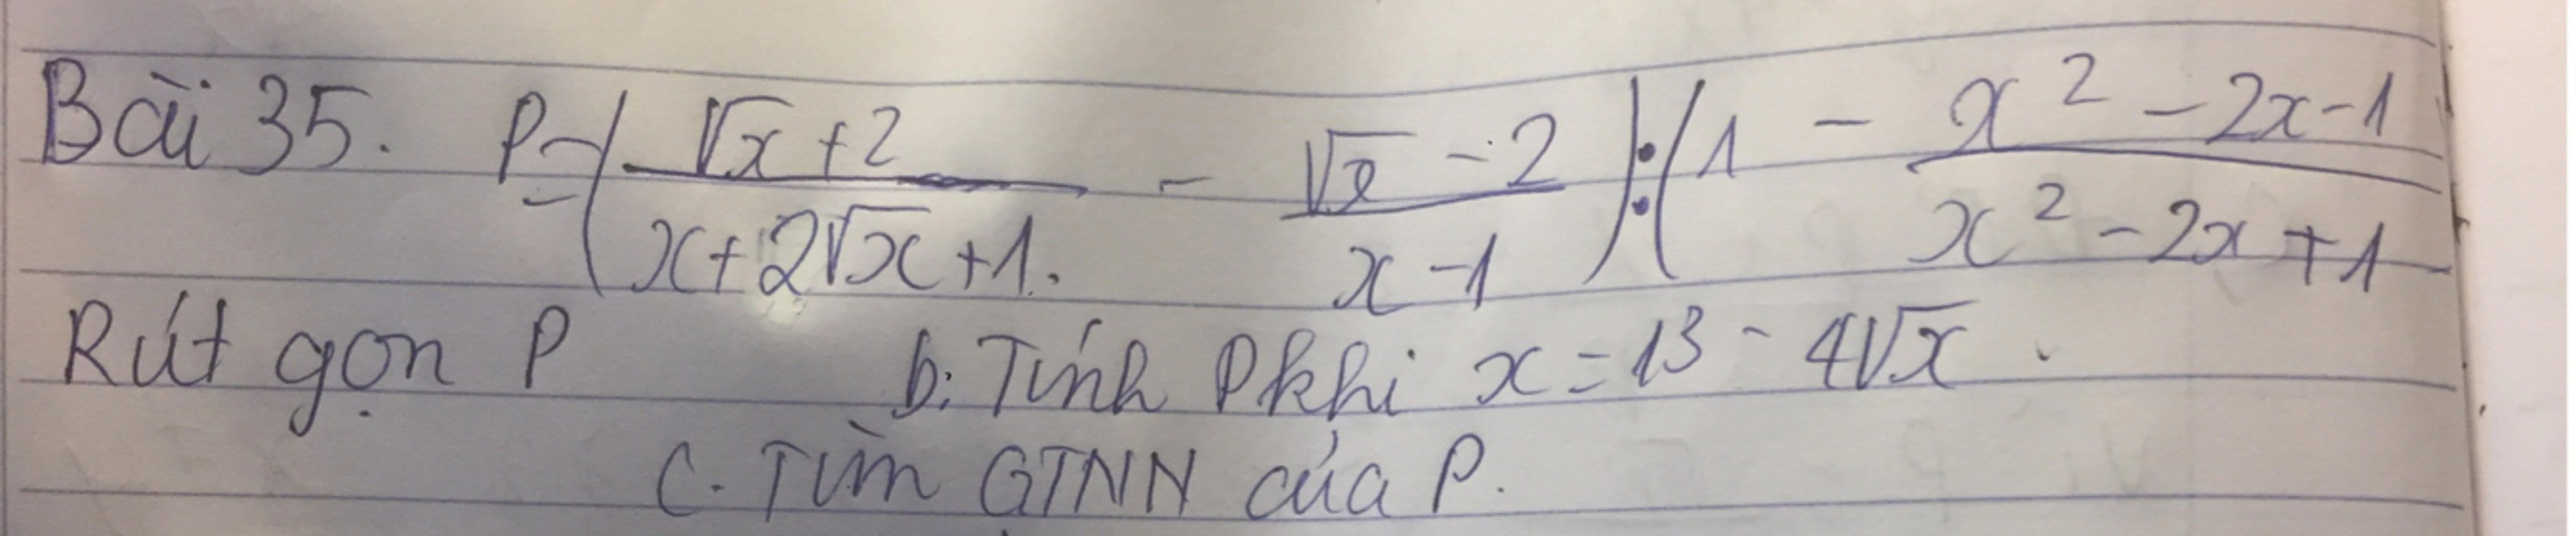 Bài 35. P = ( (√x + 2)/(x + 2√x + 1.) - (√x - 2)/(x - 1) ) : ( 1 - (x² - 2x - 1)/(x² - 2x + 1) )
Rút gọn P b: Tính P khi x = 13 - 4√x.
C. Tìm GTNN của P.